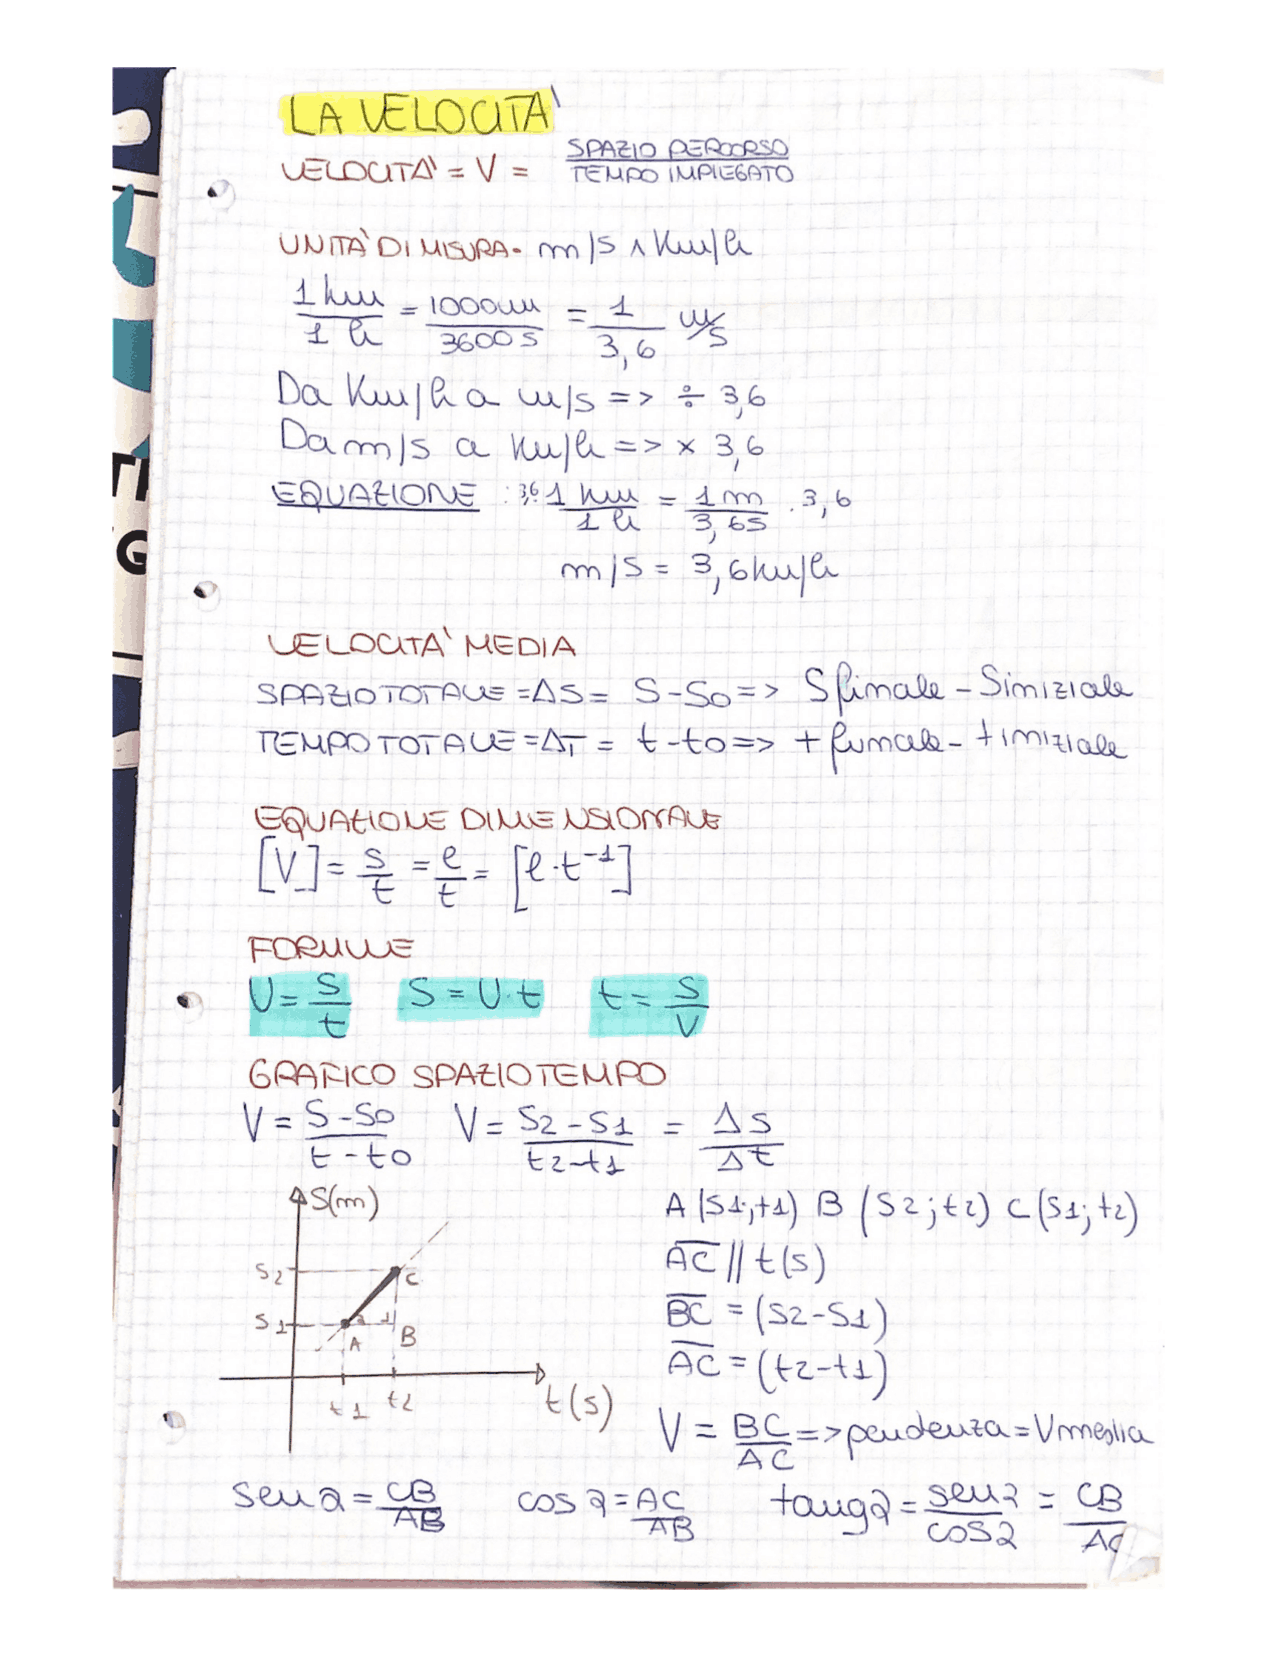 LA VELOCITA'
VELOCITA' = V = SPAZIO PERCORSO / TEMPO IMPIEGATO
UNITA' DI MISURA - m/s ∧ Km/h
1 km / 1 h = 1000 m / 3600 s = 1 / 3,6 m/s
Da Km/h a m/s => ÷ 3,6
Da m/s a Km/h => x 3,6
EQUAZIONE : 3,6 · 1 km / 1 h = 1 m / 3,6 s · 3,6
m/s = 3,6 km/h
VELOCITA' MEDIA
SPAZIO TOTALE = ΔS = S - S0 => S finale - S iniziale
TEMPO TOTALE = ΔT = t - t0 => t finale - t iniziale
EQUAZIONE DIMENSIONALE
[V] = s / t = l / t = [l · t⁻¹]
FORMULE
V = S / t S = V · t t = S / V
GRAFICO SPAZIO TEMPO
V = S - S0 / t - t0 V = S2 - S1 / t2 - t1 = ΔS / Δt
S(m)
S2
C
S1
α
A
B
t1
t2
t(s)
A (S1; t1) B (S2; t2) C (S1; t2)
AC // t(s)
BC = (S2 - S1)
AC = (t2 - t1)
V = BC / AC => pendenza = V media
sen α = CB / AB cos α = AC / AB tang α = sen α / cos α = CB / AC